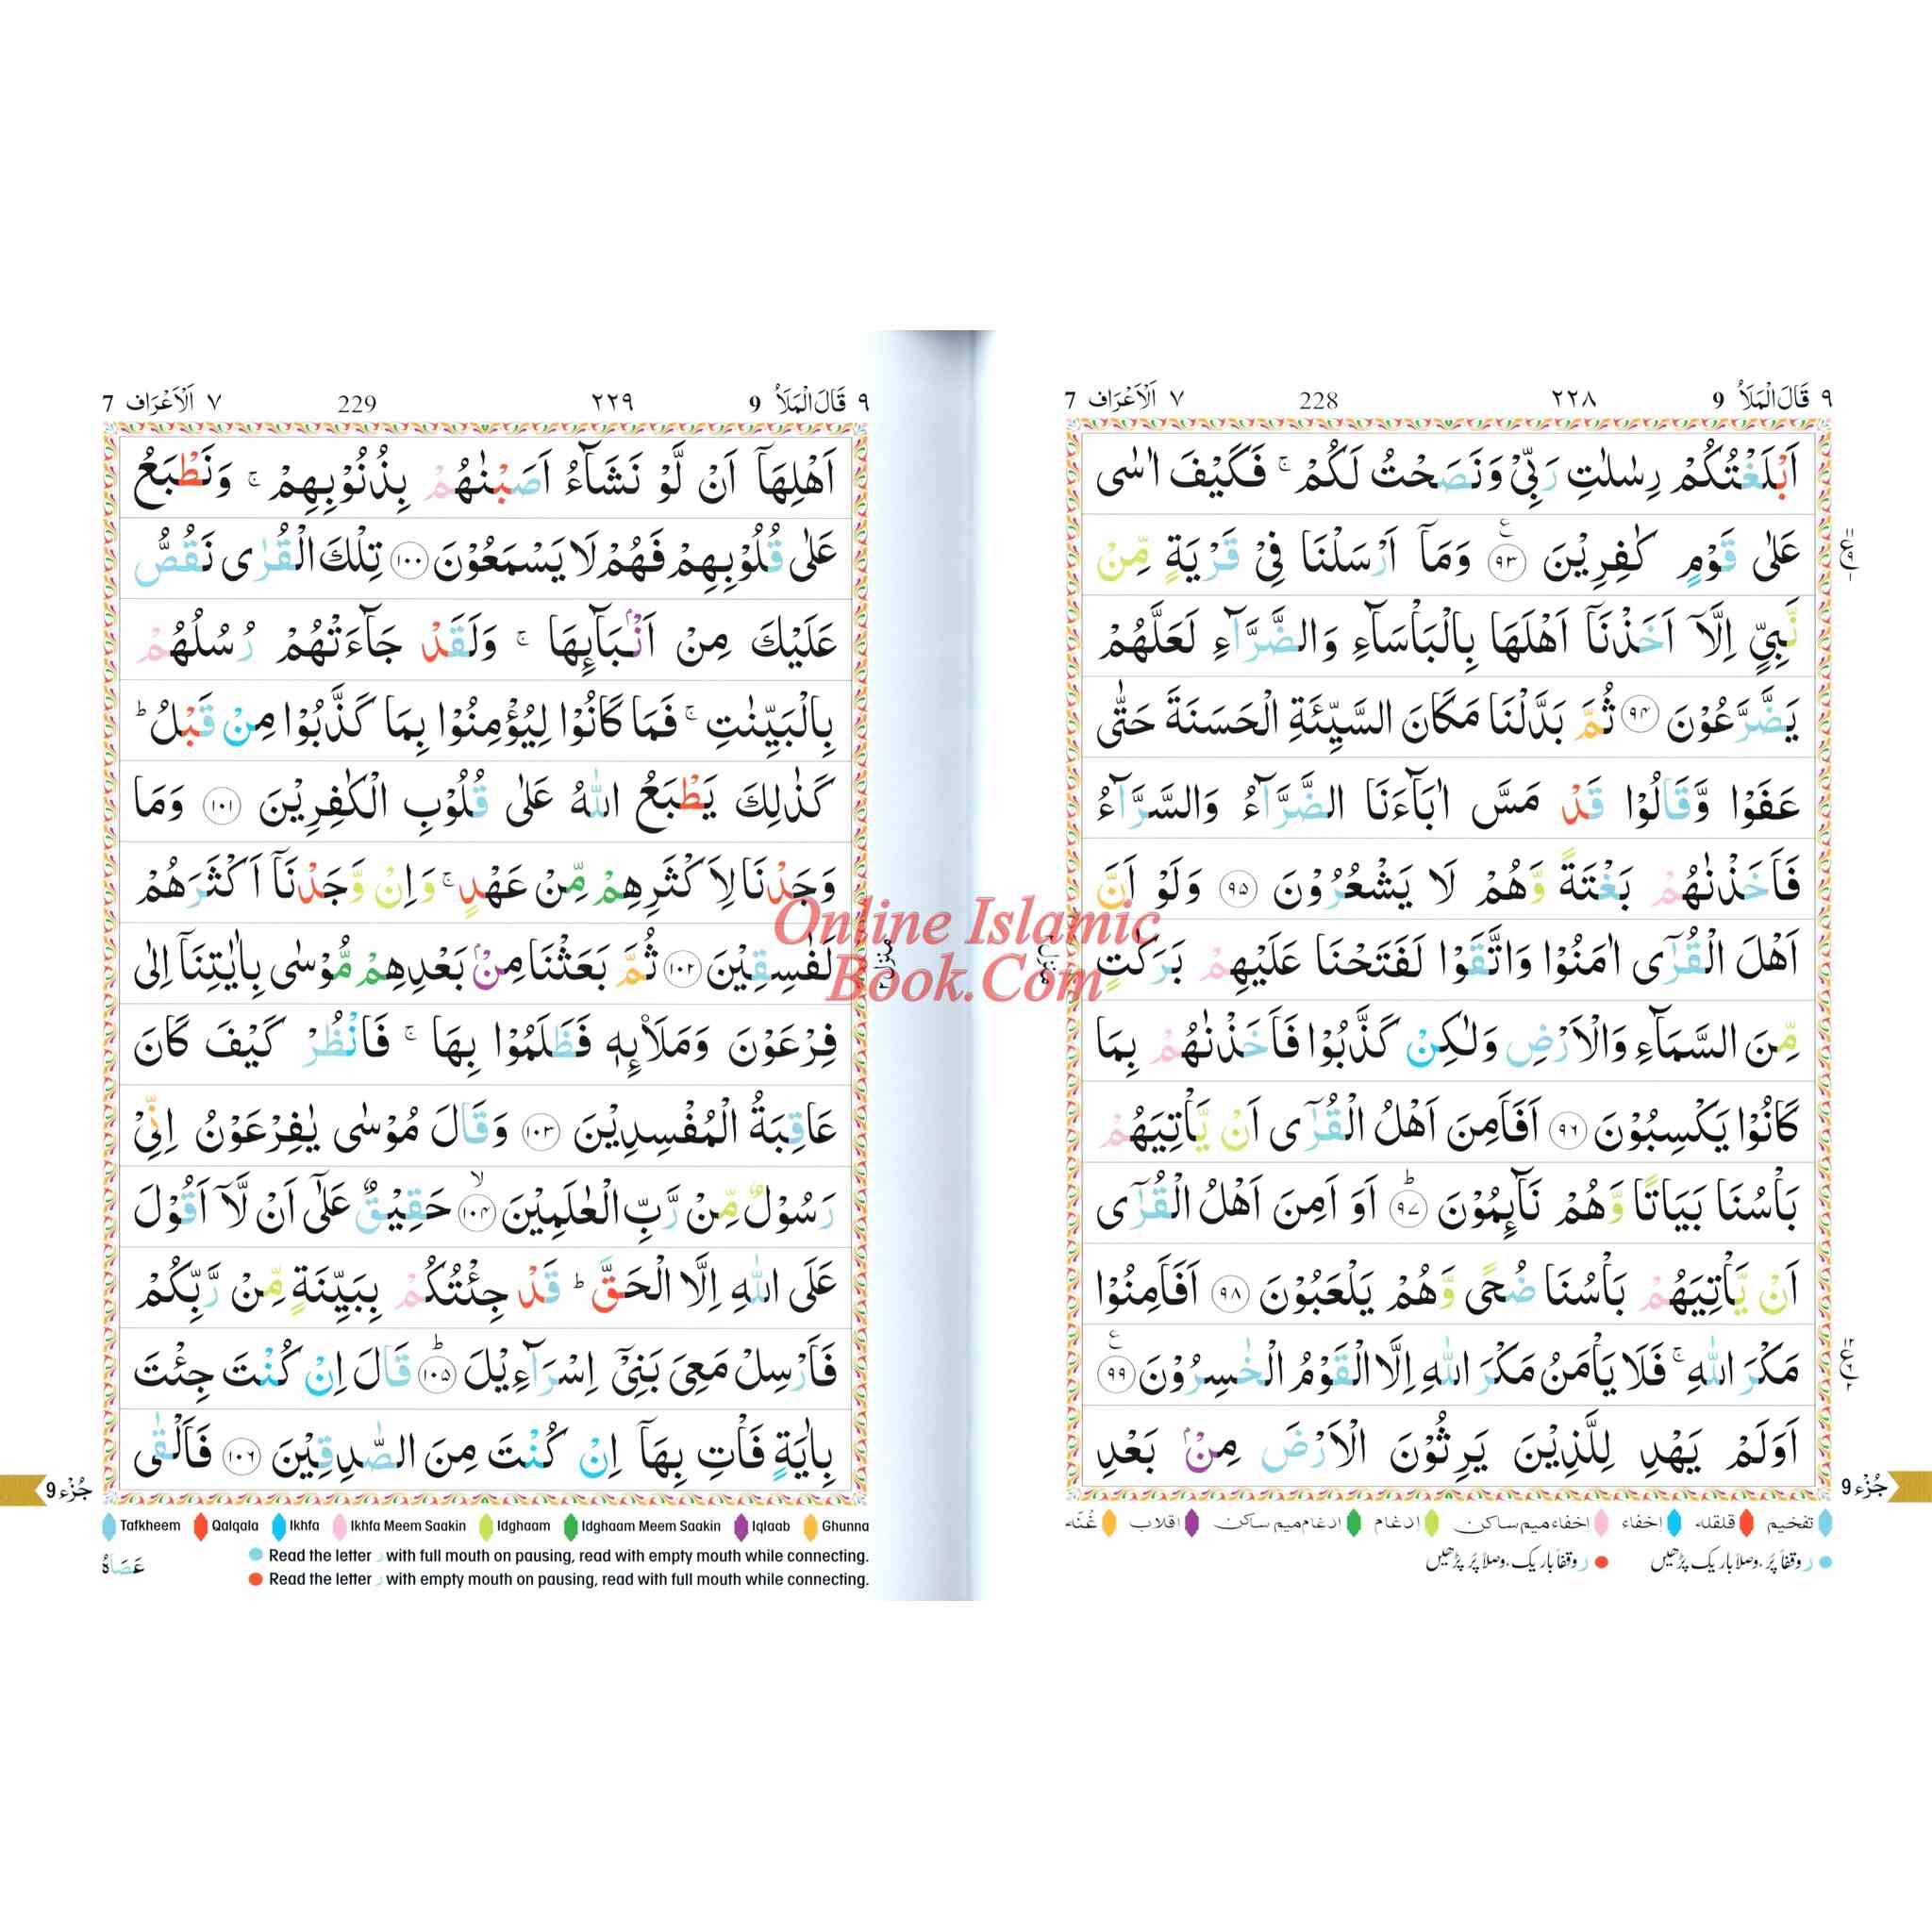 ٩ قَالَ الْمَلَأُ 9 ٢٢٨ 228 ٧ اَلْاَعْرَاف 7
اَبْلَغْتُكُمْ رِسٰلٰتِ رَبِّیْ وَنَصَحْتُ لَكُمْ ۚ فَكَیْفَ اٰسٰی
عَلٰی قَوْمٍ كٰفِرِیْنَ ﴿۹۳﴾ وَمَاۤ اَرْسَلْنَا فِیْ قَرْیَةٍ مِّنْ
نَّبِیٍّ اِلَّاۤ اَخَذْنَاۤ اَهْلَهَا بِالْبَاْسَآءِ وَالضَّرَّآءِ لَعَلَّهُمْ
یَضَّرَّعُوْنَ ﴿۹۴﴾ ثُمَّ بَدَّلْنَا مَكَانَ السَّیِّئَةِ الْحَسَنَةَ حَتّٰی
عَفَوْا وَّقَالُوْا قَدْ مَسَّ اٰبَآءَنَا الضَّرَّآءُ وَالسَّرَّآءُ
فَاَخَذْنٰهُمْ بَغْتَةً وَّهُمْ لَا یَشْعُرُوْنَ ﴿۹۵﴾ وَلَوْ اَنَّ
اَهْلَ الْقُرٰۤی اٰمَنُوْا وَاتَّقَوْا لَفَتَحْنَا عَلَیْهِمْ بَرَكٰتٍ
مِّنَ السَّمَآءِ وَالْاَرْضِ وَلٰكِنْ كَذَّبُوْا فَاَخَذْنٰهُمْ بِمَا
كَانُوْا یَكْسِبُوْنَ ﴿۹۶﴾ اَفَاَمِنَ اَهْلُ الْقُرٰۤی اَنْ یَّاْتِیَهُمْ
بَاْسُنَا بَیَاتًا وَّهُمْ نَآىِٕمُوْنَ ﴿۹۷﴾ؕ اَوَ اَمِنَ اَهْلُ الْقُرٰۤی
اَنْ یَّاْتِیَهُمْ بَاْسُنَا ضُحًی وَّهُمْ یَلْعَبُوْنَ ﴿۹۸﴾ اَفَاَمِنُوْا
مَكْرَ اللّٰهِ ۚ فَلَا یَاْمَنُ مَكْرَ اللّٰهِ اِلَّا الْقَوْمُ الْخٰسِرُوْنَ ﴿۹۹﴾
اَوَلَمْ یَهْدِ لِلَّذِیْنَ یَرِثُوْنَ الْاَرْضَ مِنْۢ بَعْدِ
جُزْء 9
تفخیم قلقلہ اخفاء اخفاء میم ساکن ادغام ادغام میم ساکن اقلاب غُنّہ
ر وقفاً پُر، وصلاً باریک پڑھیں ر وقفاً باریک، وصلاً پُر پڑھیں
٩ قَالَ الْمَلَأُ 9 ٢٢٩ 229 ٧ اَلْاَعْرَاف 7
اَهْلِهَاۤ اَنْ لَّوْ نَشَآءُ اَصَبْنٰهُمْ بِذُنُوْبِهِمْ ۚ وَنَطْبَعُ
عَلٰی قُلُوْبِهِمْ فَهُمْ لَا یَسْمَعُوْنَ ﴿۱۰۰﴾ تِلْكَ الْقُرٰی نَقُصُّ
عَلَیْكَ مِنْ اَنْۢبَآىِٕهَا ۚ وَلَقَدْ جَآءَتْهُمْ رُسُلُهُمْ
بِالْبَیِّنٰتِ ۚ فَمَا كَانُوْا لِیُؤْمِنُوْا بِمَا كَذَّبُوْا مِنْ قَبْلُ ؕ
كَذٰلِكَ یَطْبَعُ اللّٰهُ عَلٰی قُلُوْبِ الْكٰفِرِیْنَ ﴿۱۰۱﴾ وَمَا
وَجَدْنَا لِاَكْثَرِهِمْ مِّنْ عَهْدٍ ۚ وَاِنْ وَّجَدْنَاۤ اَكْثَرَهُمْ
لَفٰسِقِیْنَ ﴿۱۰۲﴾ ثُمَّ بَعَثْنَا مِنْۢ بَعْدِهِمْ مُّوْسٰی بِاٰیٰتِنَاۤ اِلٰی
فِرْعَوْنَ وَمَلَا۟ىِٕهٖ فَظَلَمُوْا بِهَا ۚ فَانْظُرْ كَیْفَ كَانَ
عَاقِبَةُ الْمُفْسِدِیْنَ ﴿۱۰۳﴾ وَقَالَ مُوْسٰی یٰفِرْعَوْنُ اِنِّیْ
رَسُوْلٌ مِّنْ رَّبِّ الْعٰلَمِیْنَ ﴿۱۰۴﴾ۙ حَقِیْقٌ عَلٰۤی اَنْ لَّاۤ اَقُوْلَ
عَلَی اللّٰهِ اِلَّا الْحَقَّ ؕ قَدْ جِئْتُكُمْ بِبَیِّنَةٍ مِّنْ رَّبِّكُمْ
فَاَرْسِلْ مَعِیَ بَنِیْۤ اِسْرَآءِیْلَ ﴿۱۰۵﴾ؕ قَالَ اِنْ كُنْتَ جِئْتَ
بِاٰیَةٍ فَاْتِ بِهَاۤ اِنْ كُنْتَ مِنَ الصّٰدِقِیْنَ ﴿۱۰۶﴾ فَاَلْقٰی
جُزْء 9
Tafkheem Qalqala Ikhfa Ikhfa Meem Saakin Idghaam Idghaam Meem Saakin Iqlaab Ghunna
Read the letter ر with full mouth on pausing, read with empty mouth while connecting.
Read the letter ر with empty mouth on pausing, read with full mouth while connecting.
عَصَاهُ
Online Islamic
Book.Com